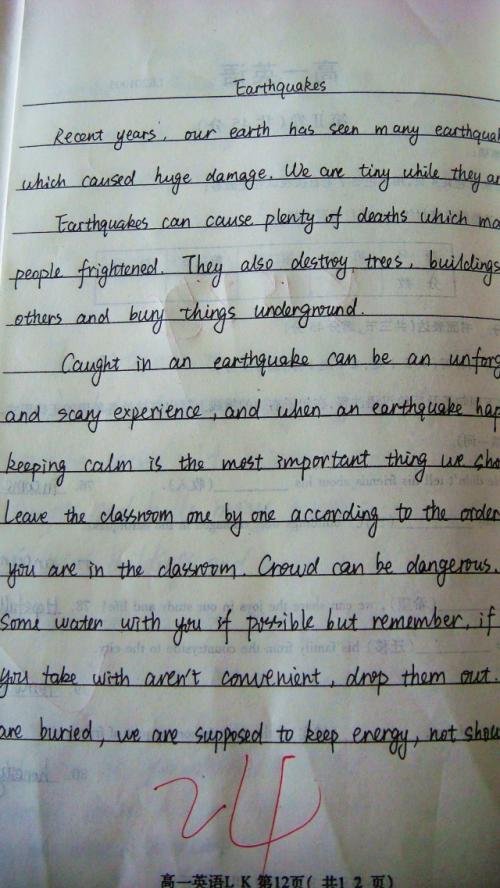 Earthquakes
Recent years, our earth has seen many
which caused huge damage. We are tiny while they
Earthquakes can cause plenty of deaths which
people frightened. They also destroy trees, buildings
others and bury things underground.
Caught in an earthquake can be an
and scary experience, and when an earthquake
keeping calm is the most important thing we
Leave the classroom one by one according to the order
you are in the classroom. Crowd can be dangerous.
Some water with you if possible but remember, if
you take with aren't convenient, drop them out.
are buried, we are supposed to keep energy, not
24
高一英语L K 第12页( 共1 2 页)